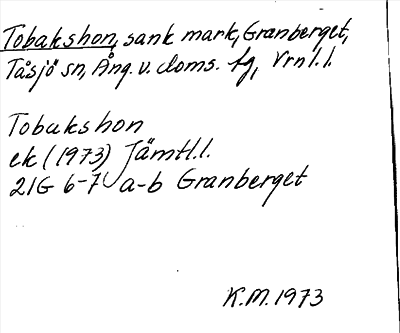 Tobakshon, sank mark, Granberget,
Tåsjö sn, Ång. v. doms. fg, Vrnl.l.
Tobakshon
ek (1973) Jämtl.l.
21G 6-7 a-b Granberget
K.M. 1973